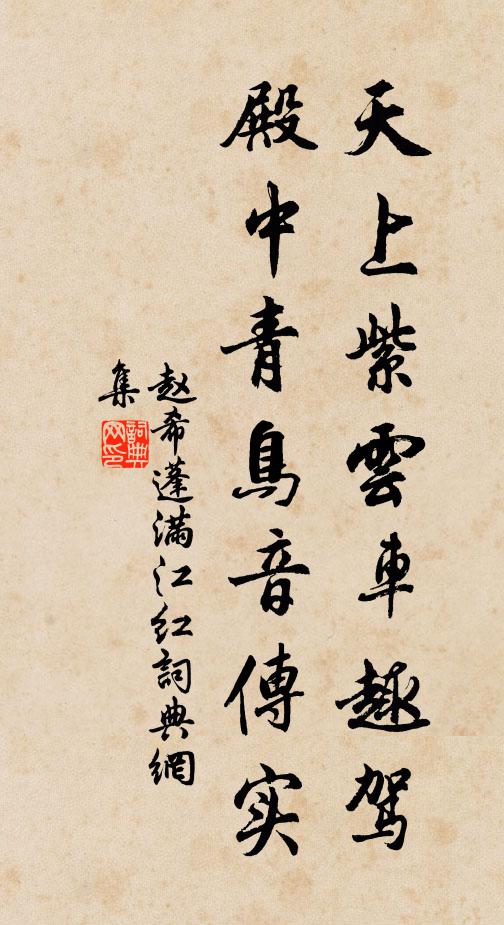 天上紫雲車趣驾
殿中青鳥音傳实
赵希蓬满江红詞典網
集
詞典
网印